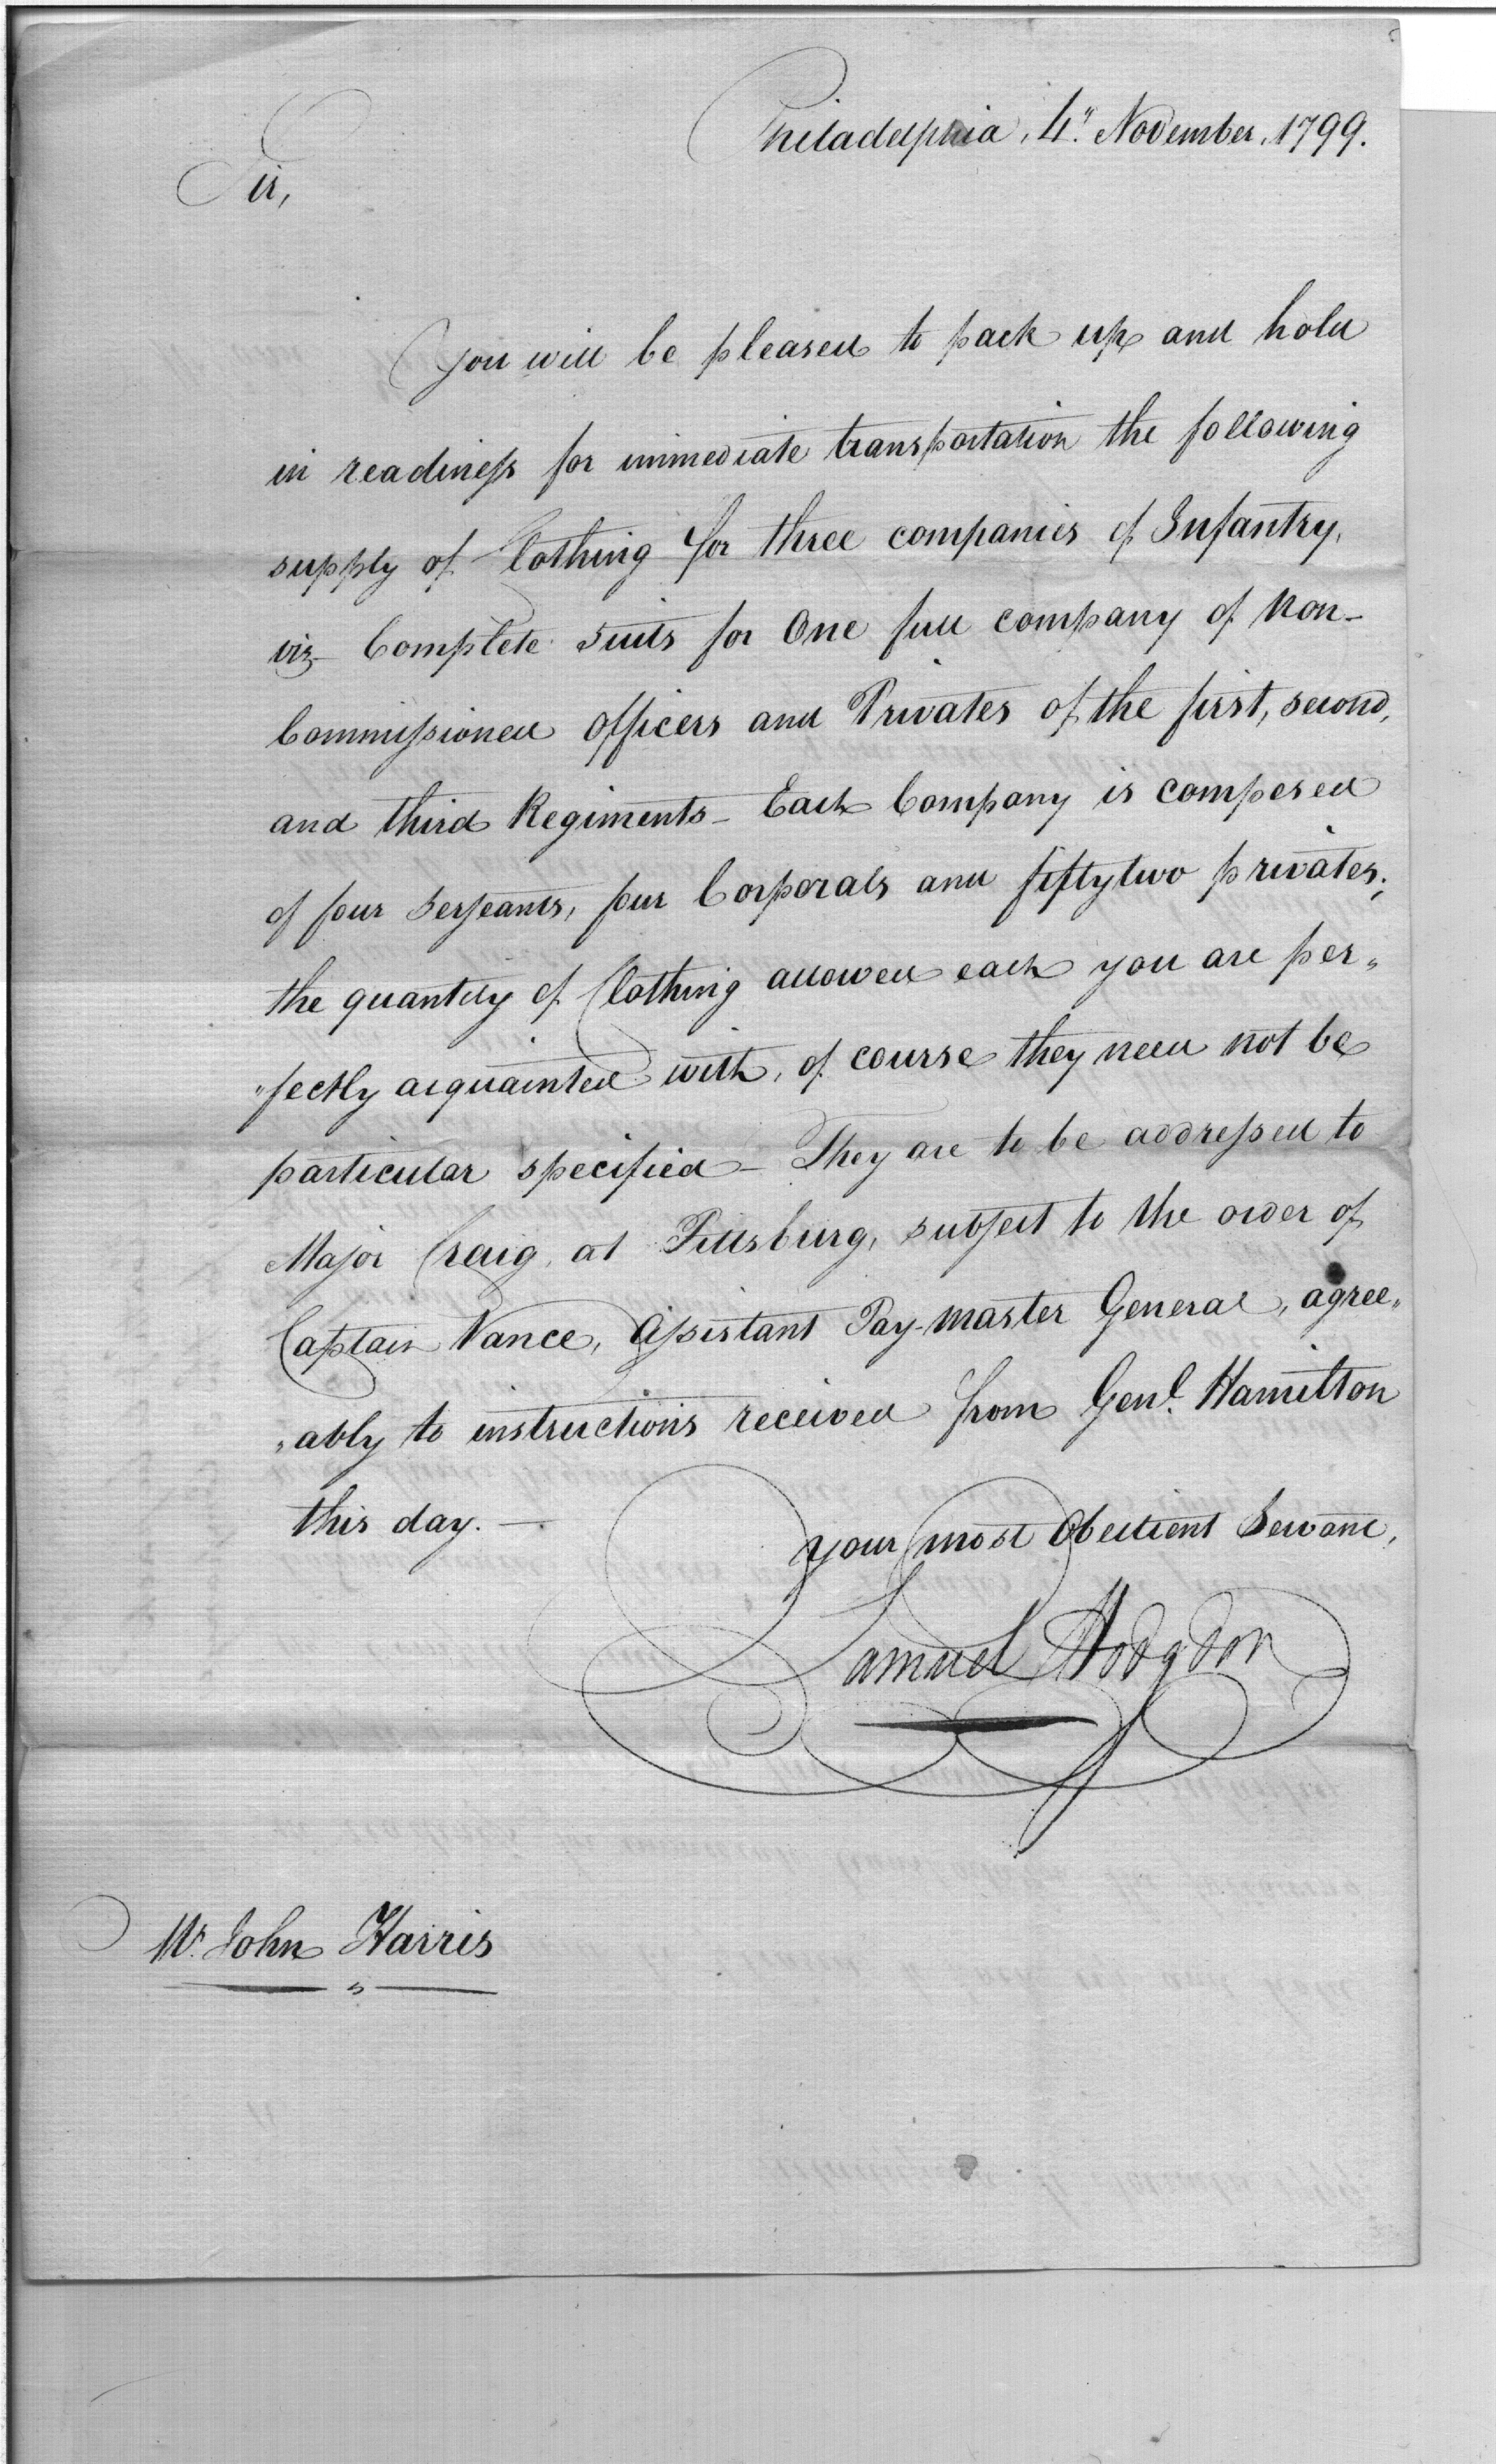 Philadelphia, 4" November, 1799.
Sir,
You will be pleased to pack up and hold
in readiness for immediate transportation the following
supply of Clothing for three companies of Infantry,
viz Complete Suits for One full company of Non-
Commissioned Officers and Privates of the first, second,
and third Regiments - Each Company is composed
of four Serjeants, four Corporals and fiftytwo privates;
the quantity of Clothing allowed each you are per„
„fectly acquainted with, of course they need not be
particular specified - They are to be addressed to
Major Craig, at Pittsburg, subject to the order of
Captain Vance, Assistant Pay-Master General, agree„
„ably to instructions received from Genl. Hamilton
this day. —
your most Obedient Servant,
Samuel Hodgdon
Mr. John Harris